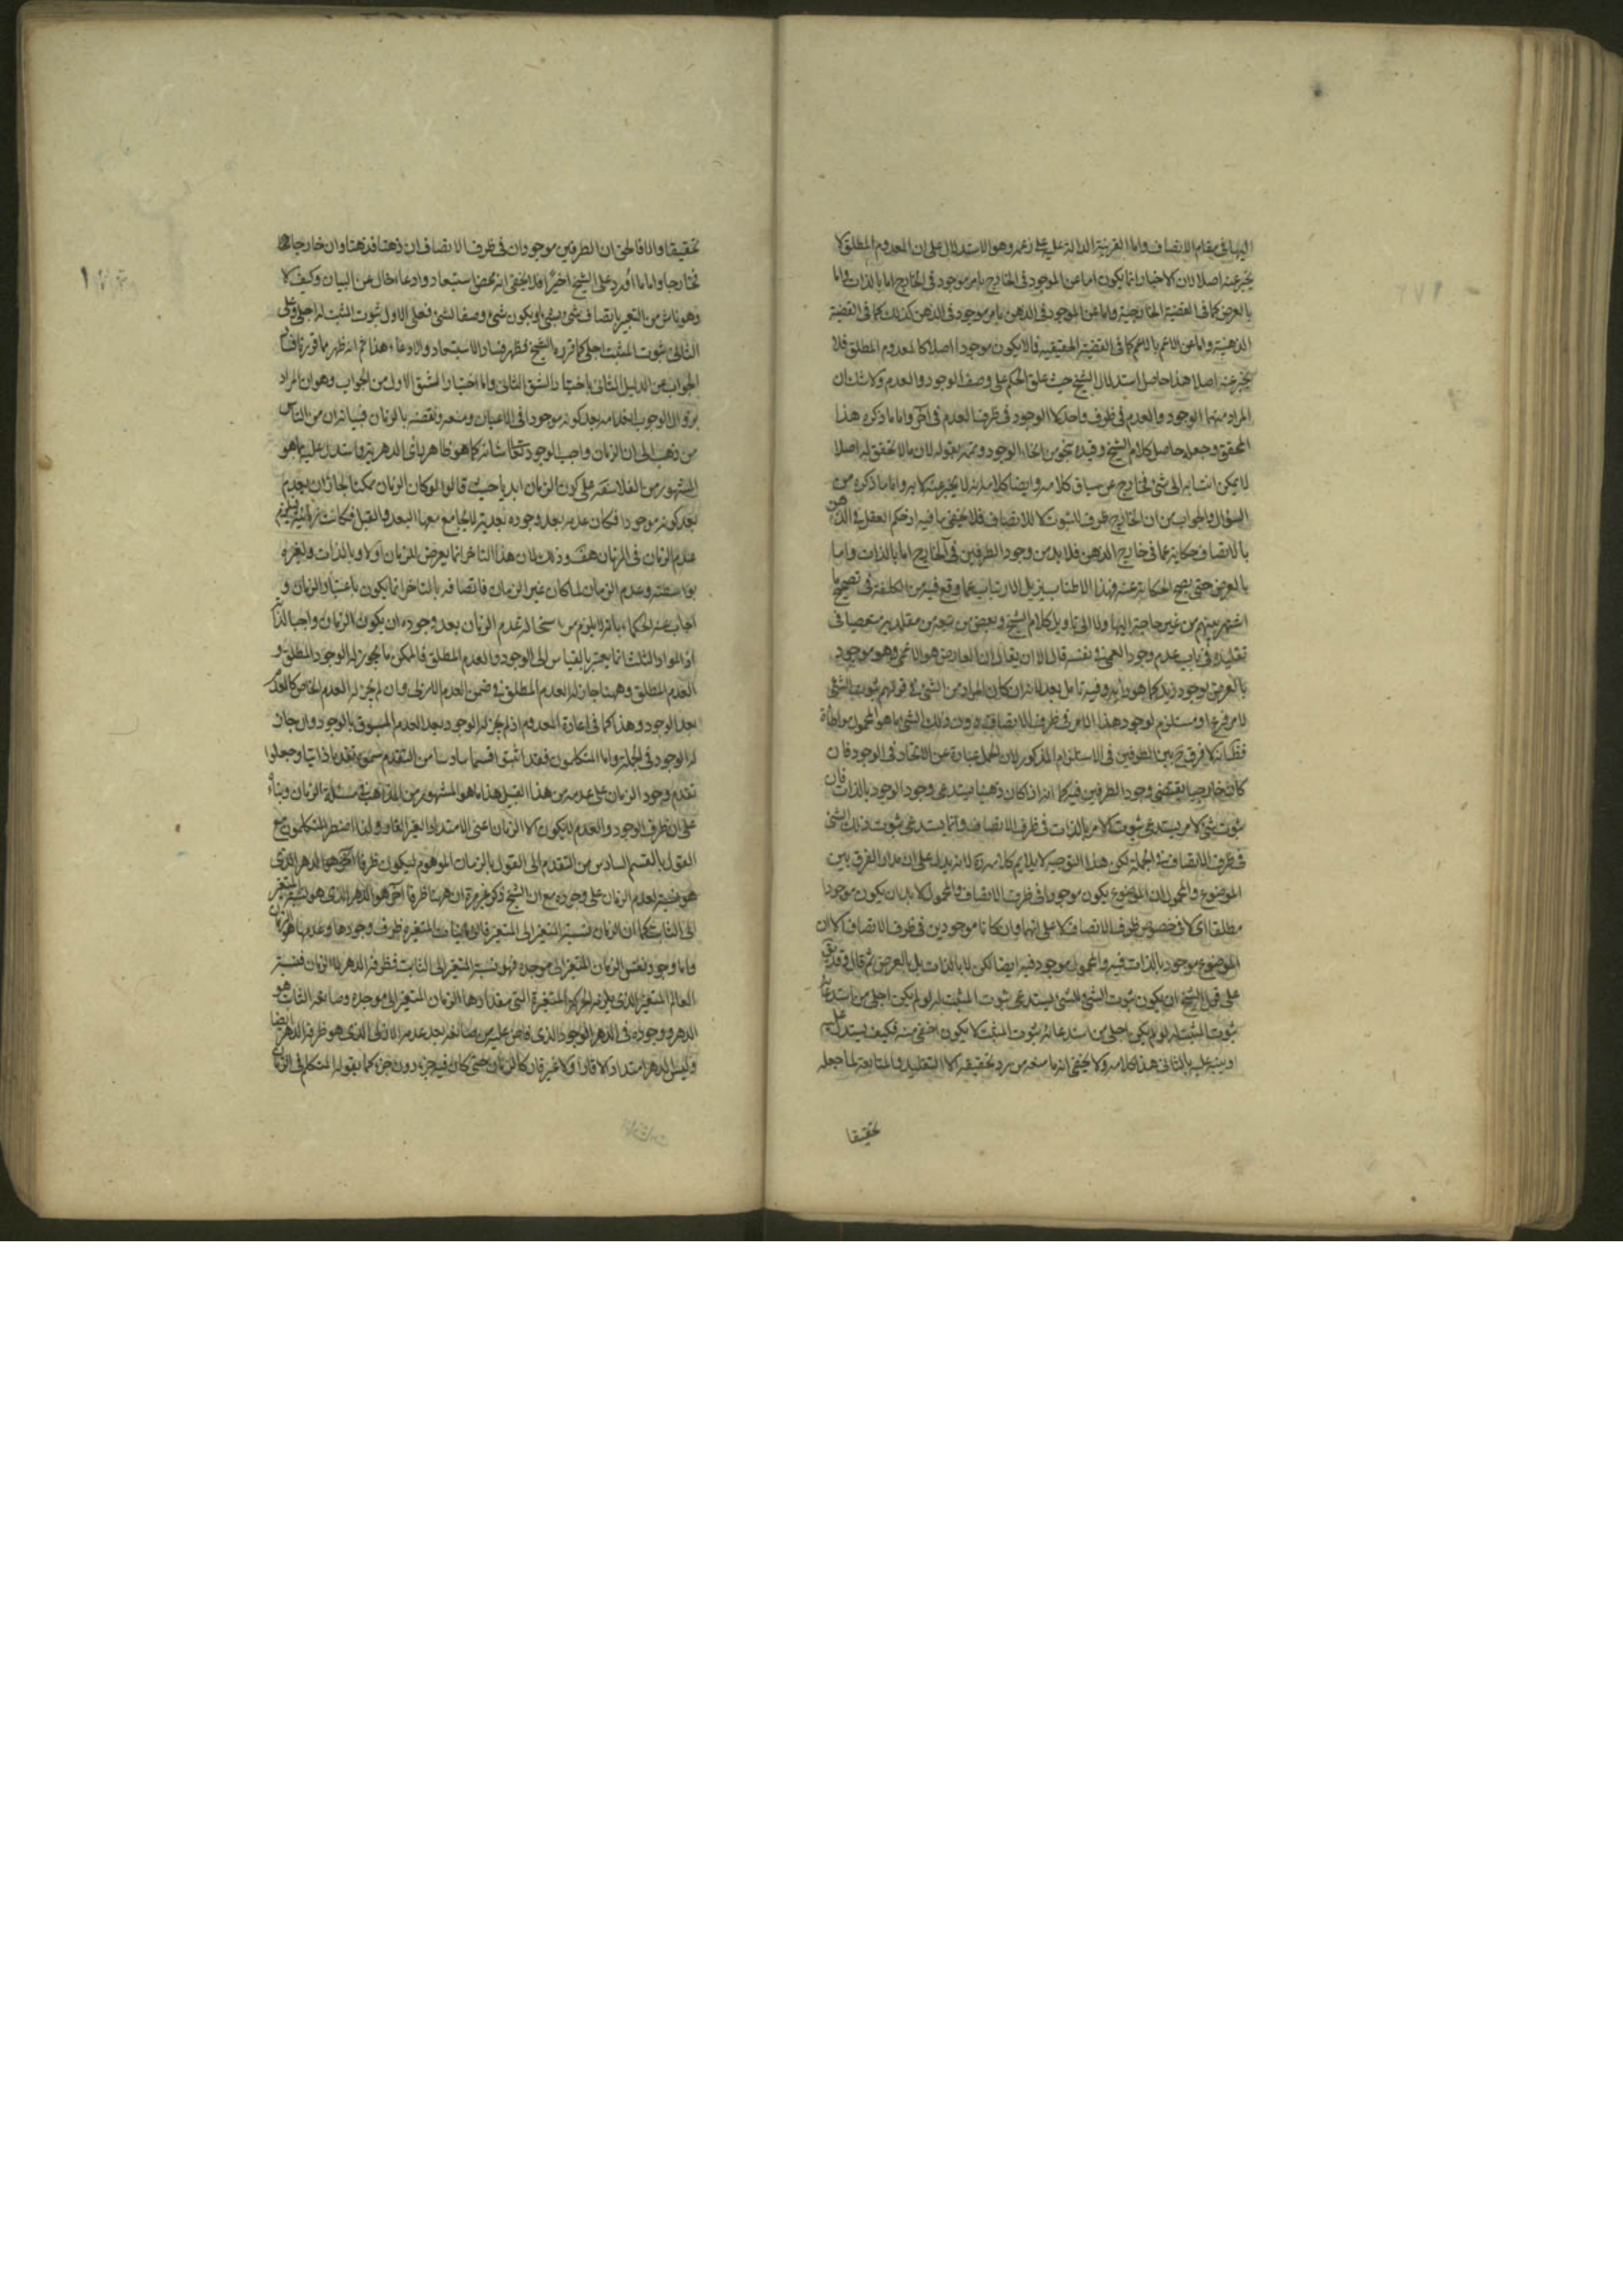 اليها في مقام الاتصاف واما القرينة الدالة عليه على زعمه وهو الاستدلال على ان المعدوم المطلق لا
يخبر عنه اصلا لان الاخبار انما يكون اما عن الموجود في الخارج بامر موجود في الخارج اما بالذات واما
بالعرض كما في القضية الخارجية واما عن الموجود في الذهن بامر موجود في الذهن كذلك كما في القضية
الذهنية واما عن الاعم بالاعم كما في القضية الحقيقية فما لا يكون موجودا اصلا كالمعدوم المطلق فلا
يخبر عنه اصلا هذا حاصل استدلال الشيخ حيث علق الحكم على وصف الوجود والعدم ولا شك ان
المراد منهما الوجود والعدم في ظرف واحد لا الوجود في ظرف والعدم في آخر واما ما ذكره هذا
المحقق وجعله حاصل كلام الشيخ وقيده بنحو من انحاء الوجود وتممه بقوله لان ما لا تحقق له اصلا
لا يمكن انتسابه الى شئ فخارج عن سياق كلامه وايضا كلامه انه لا يخبر عنه لا به واما ما ذكره من
السؤال والجواب من ان الخارج ظرف للثبوت لا للاتصاف فلا يخفى ما فيه اذ حكم العقل في الذهن
بالاتصاف حكاية عما في خارج الذهن فلا بد من وجود الطرفين في الخارج اما بالذات واما
بالعرض حتى يصح الحكاية عنه فهذا الاطناب يزيل الارتياب عما وقع فيه من التكلف في تصحيح ما
اشتهر بينهم من غير حاجة اليها ولا الى تاويل كلام الشيخ وبعض من تبعه من مقلديه متعصبا في
تقليده في باب عدم وجود العمى في نفسه قال الا ان يقال ان العارض هو الاعمى وهو موجود
بالعرض لوجود زيد كما هو رأيه وفيه تامل بعد لانه ان كان المراد من الشئ في قولهم ثبوت الشئ
لامر فرع او مستلزم لوجود هذا الامر في ظرف الاتصاف دون ذلك الشئ ما هو المحمول مواطاة
فظ انه لا فرق ح بين الطرفين في الاستلزام المذكور لان الحمل عبارة عن الاتحاد في الوجود فان
كان خارجيا يقتضي وجود الطرفين فيه كما انه اذا كان ذهنيا يستدعي وجود الوجود بالذات فان
ثبوت شئ لامر يستدعي ثبوت الامر بالذات في ظرف الاتصاف وانما يستدعي ثبوت ذلك الشئ
في ظرف الاتصاف في الجملة لكن هذا التوجيه لا يلايم كلامه لانه يدل على ان مدار الفرق بين
الموضوع والمحمول ان الموضوع يكون موجودا في ظرف الاتصاف والمحمول لا بد ان يكون موجودا
مطلقا اي لا في خصوص ظرف الاتصاف لا على انهما وان كانا موجودين في ظرف الاتصاف الا ان
الموضوع موجود بالذات فيه والمحمول موجود فيه ايضا لكن لا بالذات بل بالعرض ثم قال وقد يق
على قول الشيخ ان يكون ثبوت الشئ للشئ يستدعي ثبوت المثبت له لو لم يكن اجلى من استدعائه
ثبوت المثبت له لو لم يكن اجلى من استدعائه ثبوت المثبت لا يكون اخفى منه فكيف يستدل عليه
او ينبه عليه بالثاني هذا كلامه ولا يخفى انه ما منعه من رد تحقيقه الا التقليد والمتابعة لما جعله
تحقيقا
تحقيقا والا فالحق ان الطرفين موجودان في ظرف الاتصاف ان ذهنا فذهنا وان خارجا
فخارجا واما ما اورد على الشيخ اخيرا فلا يخفى انه محض استبعاد وادعاء خال عن البيان وكيف لا
وهو ناش من التعبير باتصاف شئ بشئ او بكون شئ وصفا لشئ فعلى الاول ثبوت المثبت له اجلى وعلى
الثاني ثبوت المثبت اجلى كما قرره الشيخ فظهر فساد الاستبعاد والادعاء هذا ثم انه ظهر مما قررنا
الجواب عن الدليل الثاني باختيار الشق الثاني واما اختيار الشق الاول من الجواب وهو ان المراد
بزوال الوجوب انعدامه بعد كونه موجودا في الاعيان ومنعه ونقضه بالزمان فبيانه ان من الناس
من ذهب الى ان الزمان واجب الوجود تعالى شانه كما هو ظاهر رأي الدهرية واستدل عليه بما هو
المشهور من الفلاسفة على كون الزمان ابديا حيث قالوا لو كان الزمان ممكنا لجاز ان يعدم
بعد كونه موجودا فكان عدمه بعد وجوده بعدية لا يجامع معها البعد والقبل فكانت زمانية فيلزم
عدم الزمان في الزمان هف وذلك لان هذا التاخر انما يعرض للزمان اولا وبالذات ولغيره
بواسطته وعدم الزمان لما كان غير الزمان فاتصافه بالتاخر انما يكون باعتبار الزمان و
اجاب عنه الحكماء بانه لا يلزم من استحالة عدم الزمان بعد وجوده ان يكون الزمان واجبا لذاته
اذ المواد الثلث انما يعتبر بالقياس الى الوجود والعدم المطلق فالممكن ما يجوز له الوجود المطلق و
العدم المطلق وههنا جاز له العدم المطلق في ضمن العدم الازلي وان لم يجز له العدم الخاص كالعدم
بعد الوجود وهذا كما في اعادة المعدوم اذ لم يجز له الوجود بعد العدم المسبوق بالوجود وان جاز
له الوجود في الجملة واما المتكلمون فقد اثبتوا قسما سادسا من التقدم سموه تقدما ذاتيا وجعلوا
تقدم وجود الزمان على عدمه من هذا القبيل هذا ما هو المشهور من المذاهب في مسئلة الزمان وبناء
على ان ظرف الوجود والعدم لا يكون الا الزمان اعني الامتداد الغير القار ولذا اضطر المتكلمون مع
القول بالقسم السادس من التقدم الى القول بالزمان الموهوم ليكون ظرفا
لعدم الزمان على وجوده مع ان الشيخ ذكر غير مرة ان ههنا ظرفا آخر هو الدهر الذي هو نسبة المتغير
الى الثابت كما ان الزمان نسبة المتغير الى المتغير ظرف وجودها وعدمها هو الزمان
واما وجود نفس الزمان المتغير الى موجده فهو نسبة المتغير الى الثابت فظرفه الدهر لا الزمان فنسبة
العالم المتغير الذي يلزمه الحركة المتغيرة التي مقدارها الزمان المتغير الى موجده وصانعه الثابت هو
الدهر ووجوده في الدهر الوجود الذي فاض عليه من صانعه بعد عدمه الازلي الذي هو ظرفه الدهر ايضا
وليس للدهر امتداد لا قارا ولا غير قار كالزمان حتى كان فيه جزء دون جزء كما يقوله المتكلم في الزمان